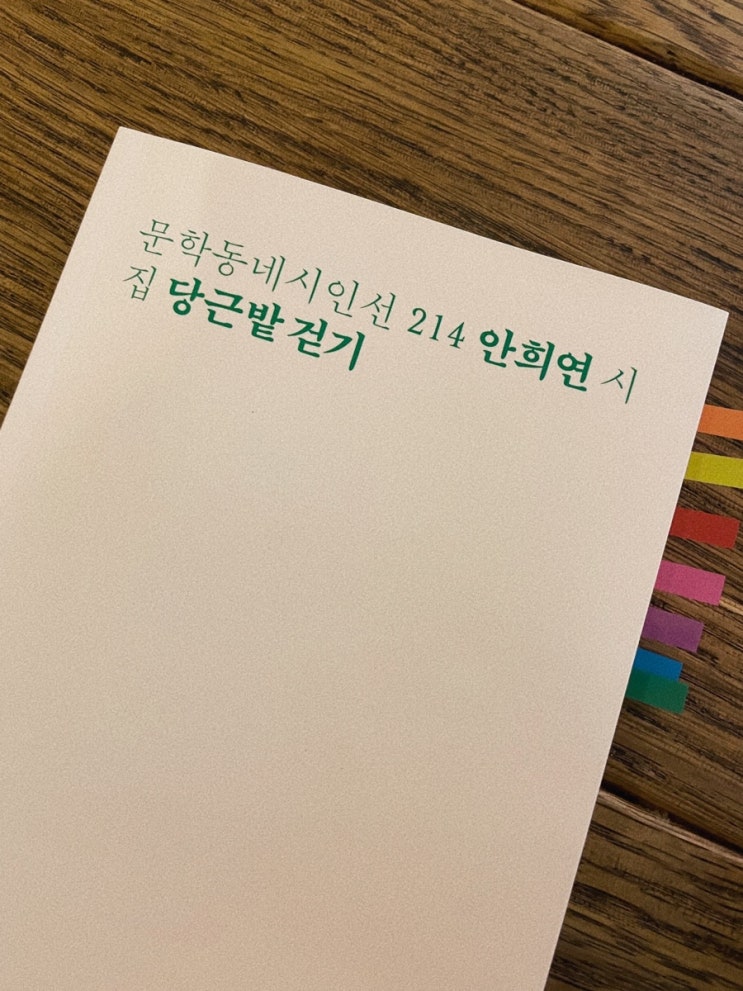 문학동네시인선 214 안희연 시
집 당근밭 걷기